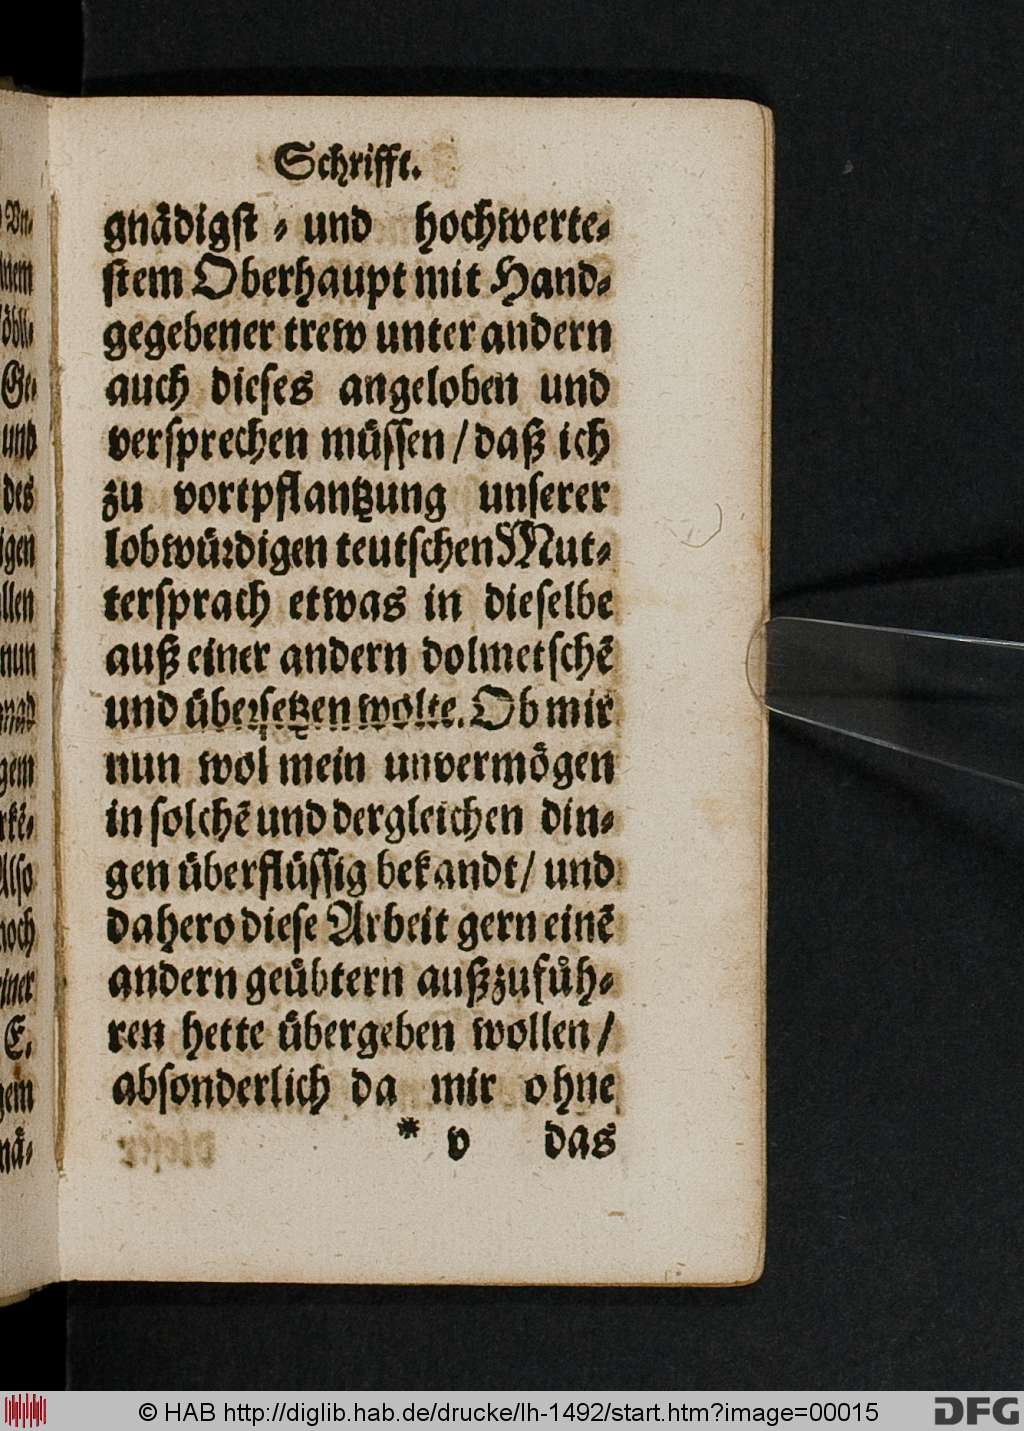 Schrifft.
gnädigst - und hochwerte-
stem Oberhaupt mit Hand-
gegebener trew unter andern
auch dieses angeloben und
versprechen müssen / daß ich
zu vortpflantzung unserer
lobwürdigen teutschen Mut-
tersprach etwas in dieselbe
auß einer andern dolmetschẽ
und übersetzen wolte. Ob mir
nun wol mein unvermögen
in solchẽ und dergleichen din-
gen überflüssig bekandt / und
dahero diese Arbeit gern einẽ
andern geübtern außzufüh-
ren hette übergeben wollen /
absonderlich da mir ohne
* v das
Vn-
inem
löbli-
Ge-
und
des
igen
llen
nun
gem
Also
noch
einer
E.
gem
nä-
© HAB http://diglib.hab.de/drucke/lh-1492/start.htm?image=00015
DFG